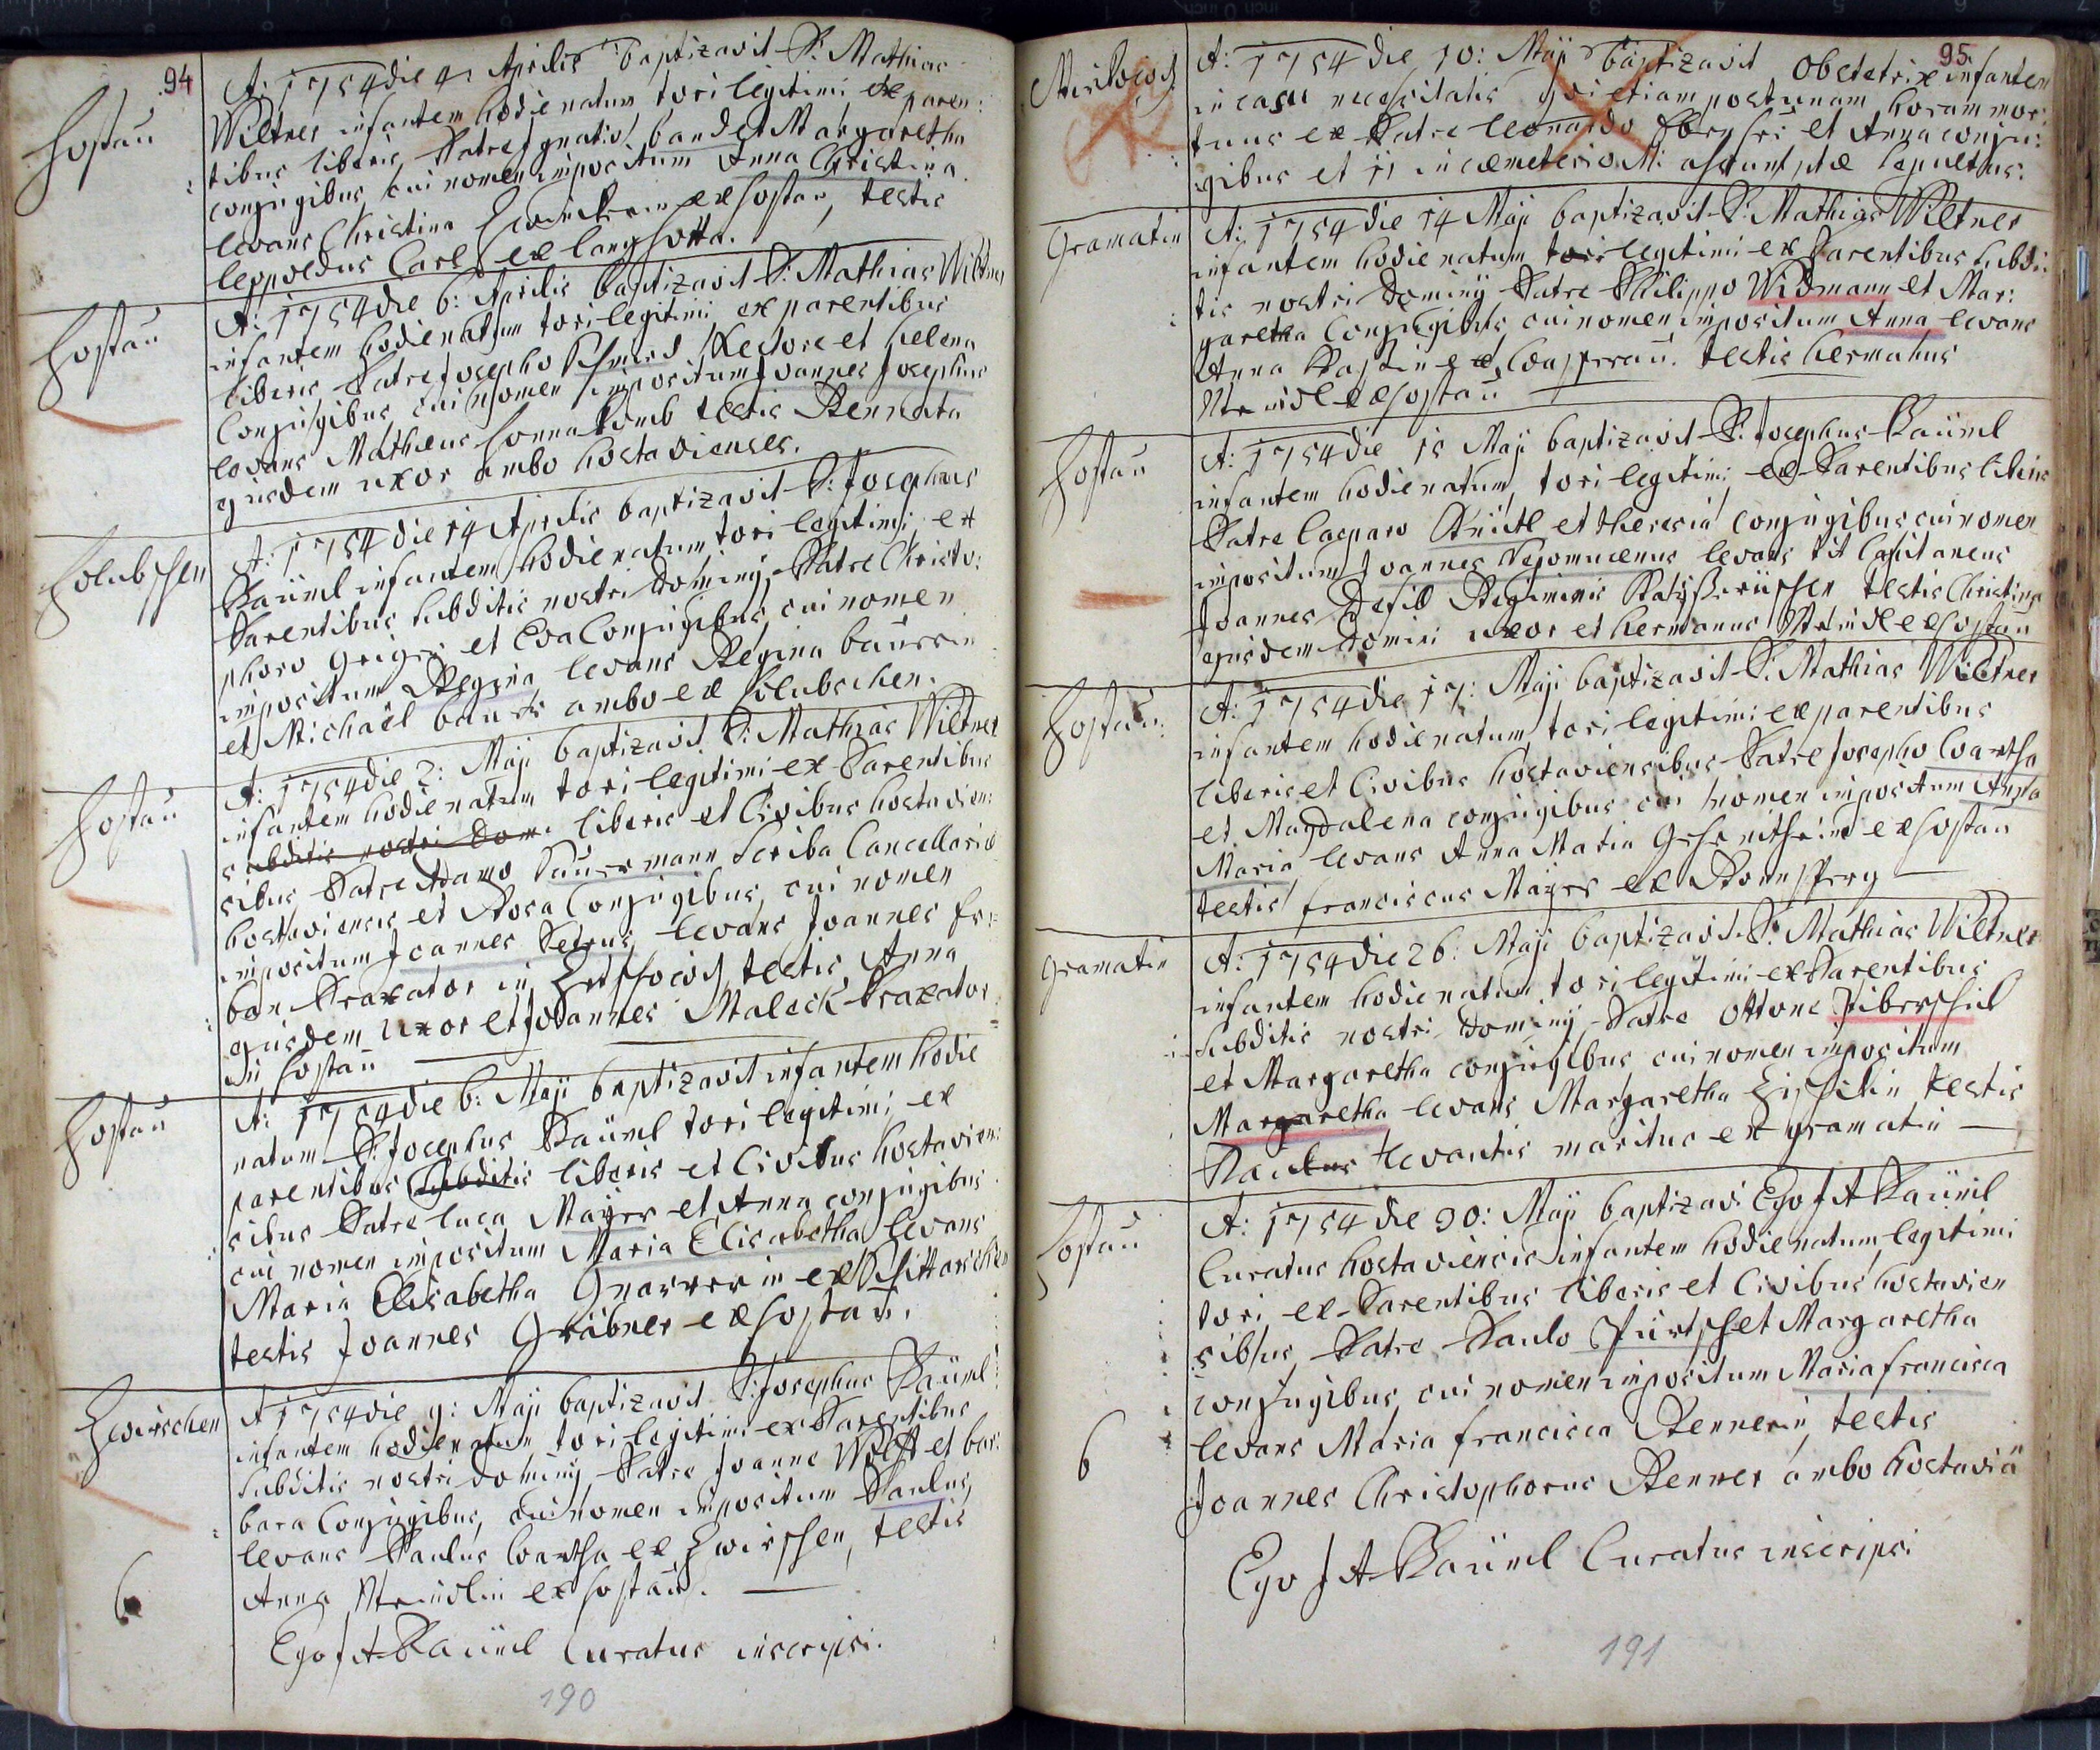 94
Hostau
A: 1754 die 4 Aprilis baptizavit P: Mathias
Wiltner infantem hodie natum tori legitimi ex paren:
tibus liberis, Patre Ignatio band et Margaretha
conjugibus, cui nomen impositum Anna Christina
levans Christina ex Hostau, testis
leopoldus Carl ex
Hostau
A: 1754 die 6: Aprilis baptizavit P: Mathias Wiltner
infantem hodie natum tori legitimi ex parentibus
liberis, Patre Josepho Schmid Rectore et helena
Conjugibus, cui nomen impositum Joannes Josephus
levans Mathaeus testis Rennata
ejusdem uxor ambo hostavienses.
Holubschen
A: 1754 die 14 Aprilis baptizavit P: Josephus
Baüml infantem hodie natum, tori legitimi ex
Parentibus subditis nostri Dominij, Patre Christo:
phoro et Eva Conjugibus, cui nomen
impositum Regina levans Regina baurrin
et Michaël baur ambo ex Holubschen.
Hostau
A: 1754 die 2: Maji baptizavit P: Mathias Wiltner
infantem hodie natum tori legitimi ex Parentibus
subditis nostri Dom: liberis et Civibus hostavien:
sibus Patre Adamo Sauermann Scriba Cancellariae
hostaviensis et Rosa Conjugibus, cui nomen
impositum Joannes Petrus, levans Joannes
ban Braxator in testis Anna
ejusdem uxor et Johannes Maleck Braxator
in Hostau
Hostau
A: 1754 die 6: Maji baptizavit infantem hodie
natum P: Josephus Baüml tori legitimi ex
parentibus subditis liberis et Civibus hostavien:
sibus Patre luca Mayer et Anna conjugibus
cui nomen impositum Maria Elisabetha levans
Maria Elisabetha ex
testis Joannes Grabner ex Hostau.
Zwirschen
A 1754 die 9: Maji baptizavit P: Josephus Baüml
infantem hodie natum tori legitimi ex Parentibus
subditis nostri Dominij Patre Joanne et bar:
bara Conjugibus, cui nomen impositum Paulus,
levans Paulus Wartha ex Zwirschen, testis
Anna ex Hostau.
6
Ego J A Baüml Curatus inscripsi.
190
95
A: 1754 die 10: Maji baptizavit Obstetrix infantem
in casu necessitatis qui etiam post unam horam mor:
tuus ex Patre leonardo et Anna conju:
gibus et 11 in caemeterio M: assumptae sepultus.
Gramatin
A: 1754 die 14 Maji baptizavit P: Mathias Wiltner
infantem hodie natum tori legitimi ex Parentibus subdi:
tis nostri Dominij Patre Philippo Widmann et Mar:
garetha Conjugibus, cui nomen impositum Anna levans
Anna ex testis hermanus
ex Hostau
Hostau
A: 1754 die 15 Maji baptizavit P: Josephus Baüml
infantem hodie natum, tori legitimi ex Parentibus liberis
Patre Casparo et theresia conjugibus cui nomen
impositum Joannes Nepomucenus levans tit Capitaneus
Joannes Regiminis testis Christina
ejusdem Domini uxor et hermanus ex Hostau
Hostau
A: 1754 die 17: Maji baptizavit P: Mathias Wiltner
infantem hodie natum tori legitimi ex parentibus
liberis et Civibus hostaviensibus Patre Josepho Wartha
et Magdalena conjugibus cui nomen impositum Anna
Maria levans Anna Maria ex Hostau
testis franciscus Mayer ex Ronsperg
Gramatin
A: 1754 die 26: Maji baptizavit P: Mathias Wiltner
infantem hodie natum tori legitimi ex Parentibus
subditis nostri Dominij Patre Ottone
et Margaretha conjugibus cui nomen impositum
Margaretha levans Margaretha testis
Paulus levantis maritus ex gramatin
Hostau
A: 1754 die 30: Maji baptizavi Ego J A Baüml
Curatus hostaviensis infantem hodie natum, legitimi
tori ex Parentibus liberis et Civibus hostavien
sibus Patre Paulo et Margaretha
conjugibus, cui nomen impositum Maria francisca
levans Maria francisca Rennerin, testis
Joannes Christophorus Renner ambo hostaviä
6
Ego J A Baüml Curatus inscripsi
191